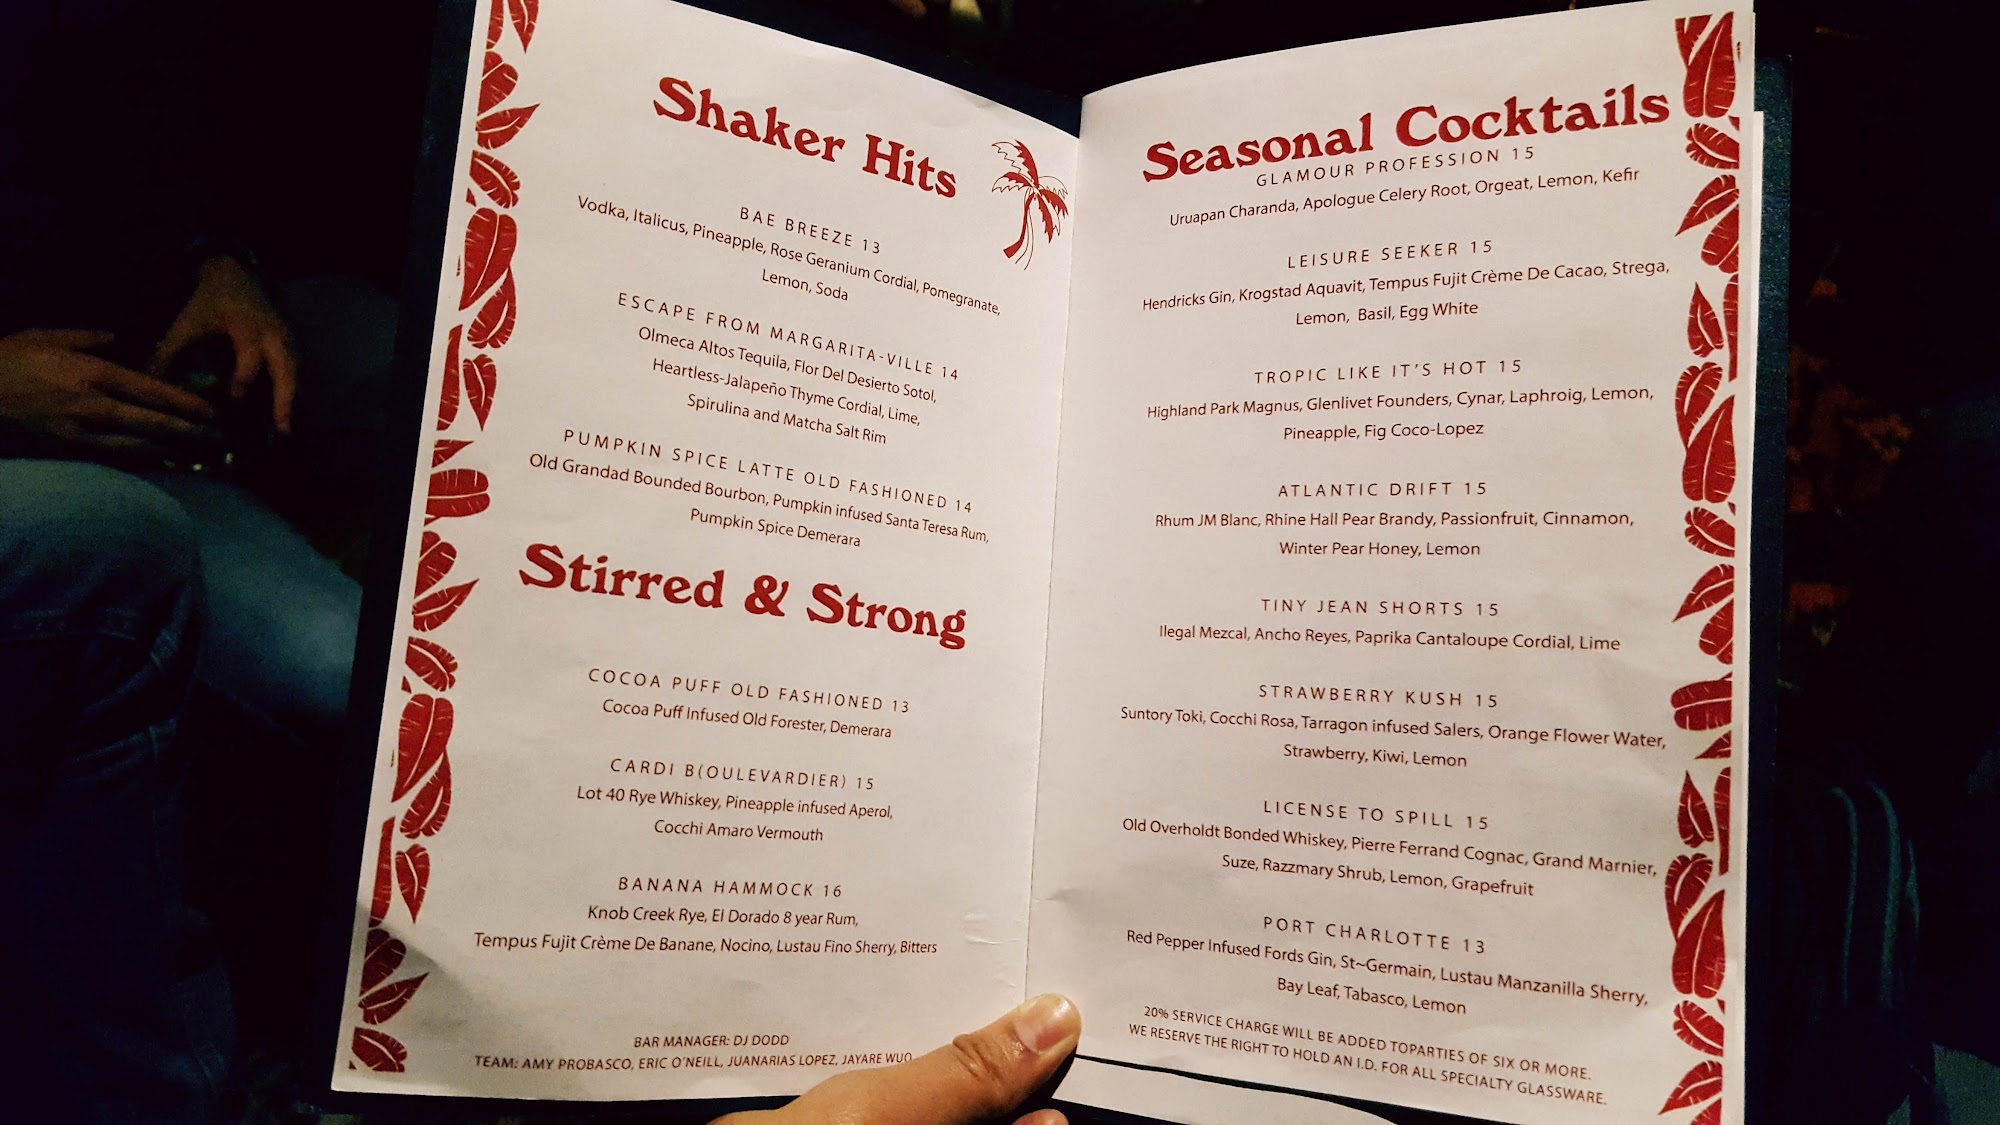 Shaker Hits
BAE BREEZE 13
Vodka, Italicus, Pineapple, Rose Geranium Cordial, Pomegranate,
Lemon, Soda
ESCAPE FROM MARGARITA-VILLE 14
Olmeca Altos Tequila, Flor Del Desierto Sotol,
Heartless-Jalapeño Thyme Cordial, Lime,
Spirulina and Matcha Salt Rim
PUMPKIN SPICE LATTE OLD FASHIONED 14
Old Grandad Bounded Bourbon, Pumpkin infused Santa Teresa Rum,
Pumpkin Spice Demerara
Stirred & Strong
COCOA PUFF OLD FASHIONED 13
Cocoa Puff Infused Old Forester, Demerara
CARDI B(OULEVARDIER) 15
Lot 40 Rye Whiskey, Pineapple infused Aperol,
Cocchi Amaro Vermouth
BANANA HAMMOCK 16
Knob Creek Rye, El Dorado 8 year Rum,
Tempus Fujit Crème De Banane, Nocino, Lustau Fino Sherry, Bitters
BAR MANAGER: DJ DODD
TEAM: AMY PROBASCO, ERIC O'NEILL, JUANARIAS LOPEZ, JAYARE WUO
Seasonal Cocktails
GLAMOUR PROFESSION 15
Uruapan Charanda, Apologue Celery Root, Orgeat, Lemon, Kefir
LEISURE SEEKER 15
Hendricks Gin, Krogstad Aquavit, Tempus Fujit Crème De Cacao, Strega,
Lemon, Basil, Egg White
TROPIC LIKE IT'S HOT 15
Highland Park Magnus, Glenlivet Founders, Cynar, Laphroig, Lemon,
Pineapple, Fig Coco-Lopez
ATLANTIC DRIFT 15
Rhum JM Blanc, Rhine Hall Pear Brandy, Passionfruit, Cinnamon,
Winter Pear Honey, Lemon
TINY JEAN SHORTS 15
Ilegal Mezcal, Ancho Reyes, Paprika Cantaloupe Cordial, Lime
STRAWBERRY KUSH 15
Suntory Toki, Cocchi Rosa, Tarragon infused Salers, Orange Flower Water,
Strawberry, Kiwi, Lemon
LICENSE TO SPILL 15
Old Overholdt Bonded Whiskey, Pierre Ferrand Cognac, Grand Marnier,
Suze, Razzmary Shrub, Lemon, Grapefruit
PORT CHARLOTTE 13
Red Pepper Infused Fords Gin, St~Germain, Lustau Manzanilla Sherry,
Bay Leaf, Tabasco, Lemon
20% SERVICE CHARGE WILL BE ADDED TOPARTIES OF SIX OR MORE.
WE RESERVE THE RIGHT TO HOLD AN I.D. FOR ALL SPECIALTY GLASSWARE.